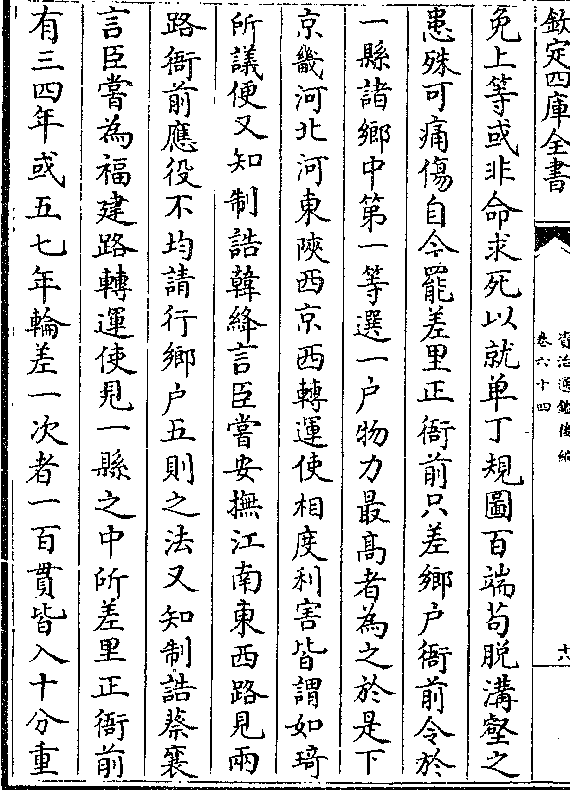 欽定四庫全書
資治通鑑後編
卷六十四
十八
免上等或非命求死以就单丁規圖百端苟脱溝壑之
患殊可痛傷自今罷差里正衙前只差鄉户衙前令於
一縣諸鄉中第一等選一户物力最髙者為之於是下
京畿河北河東陜西京西轉運使相度利害皆謂如琦
所議便又知制誥韓絳言臣嘗安撫江南東西路見兩
路衙前應役不均請行鄉户五則之法又知制誥蔡襄
言臣嘗為福建路轉運使見一縣之中所差里正衙前
有三四年或五七年輪差一次者一百貫皆入十分重